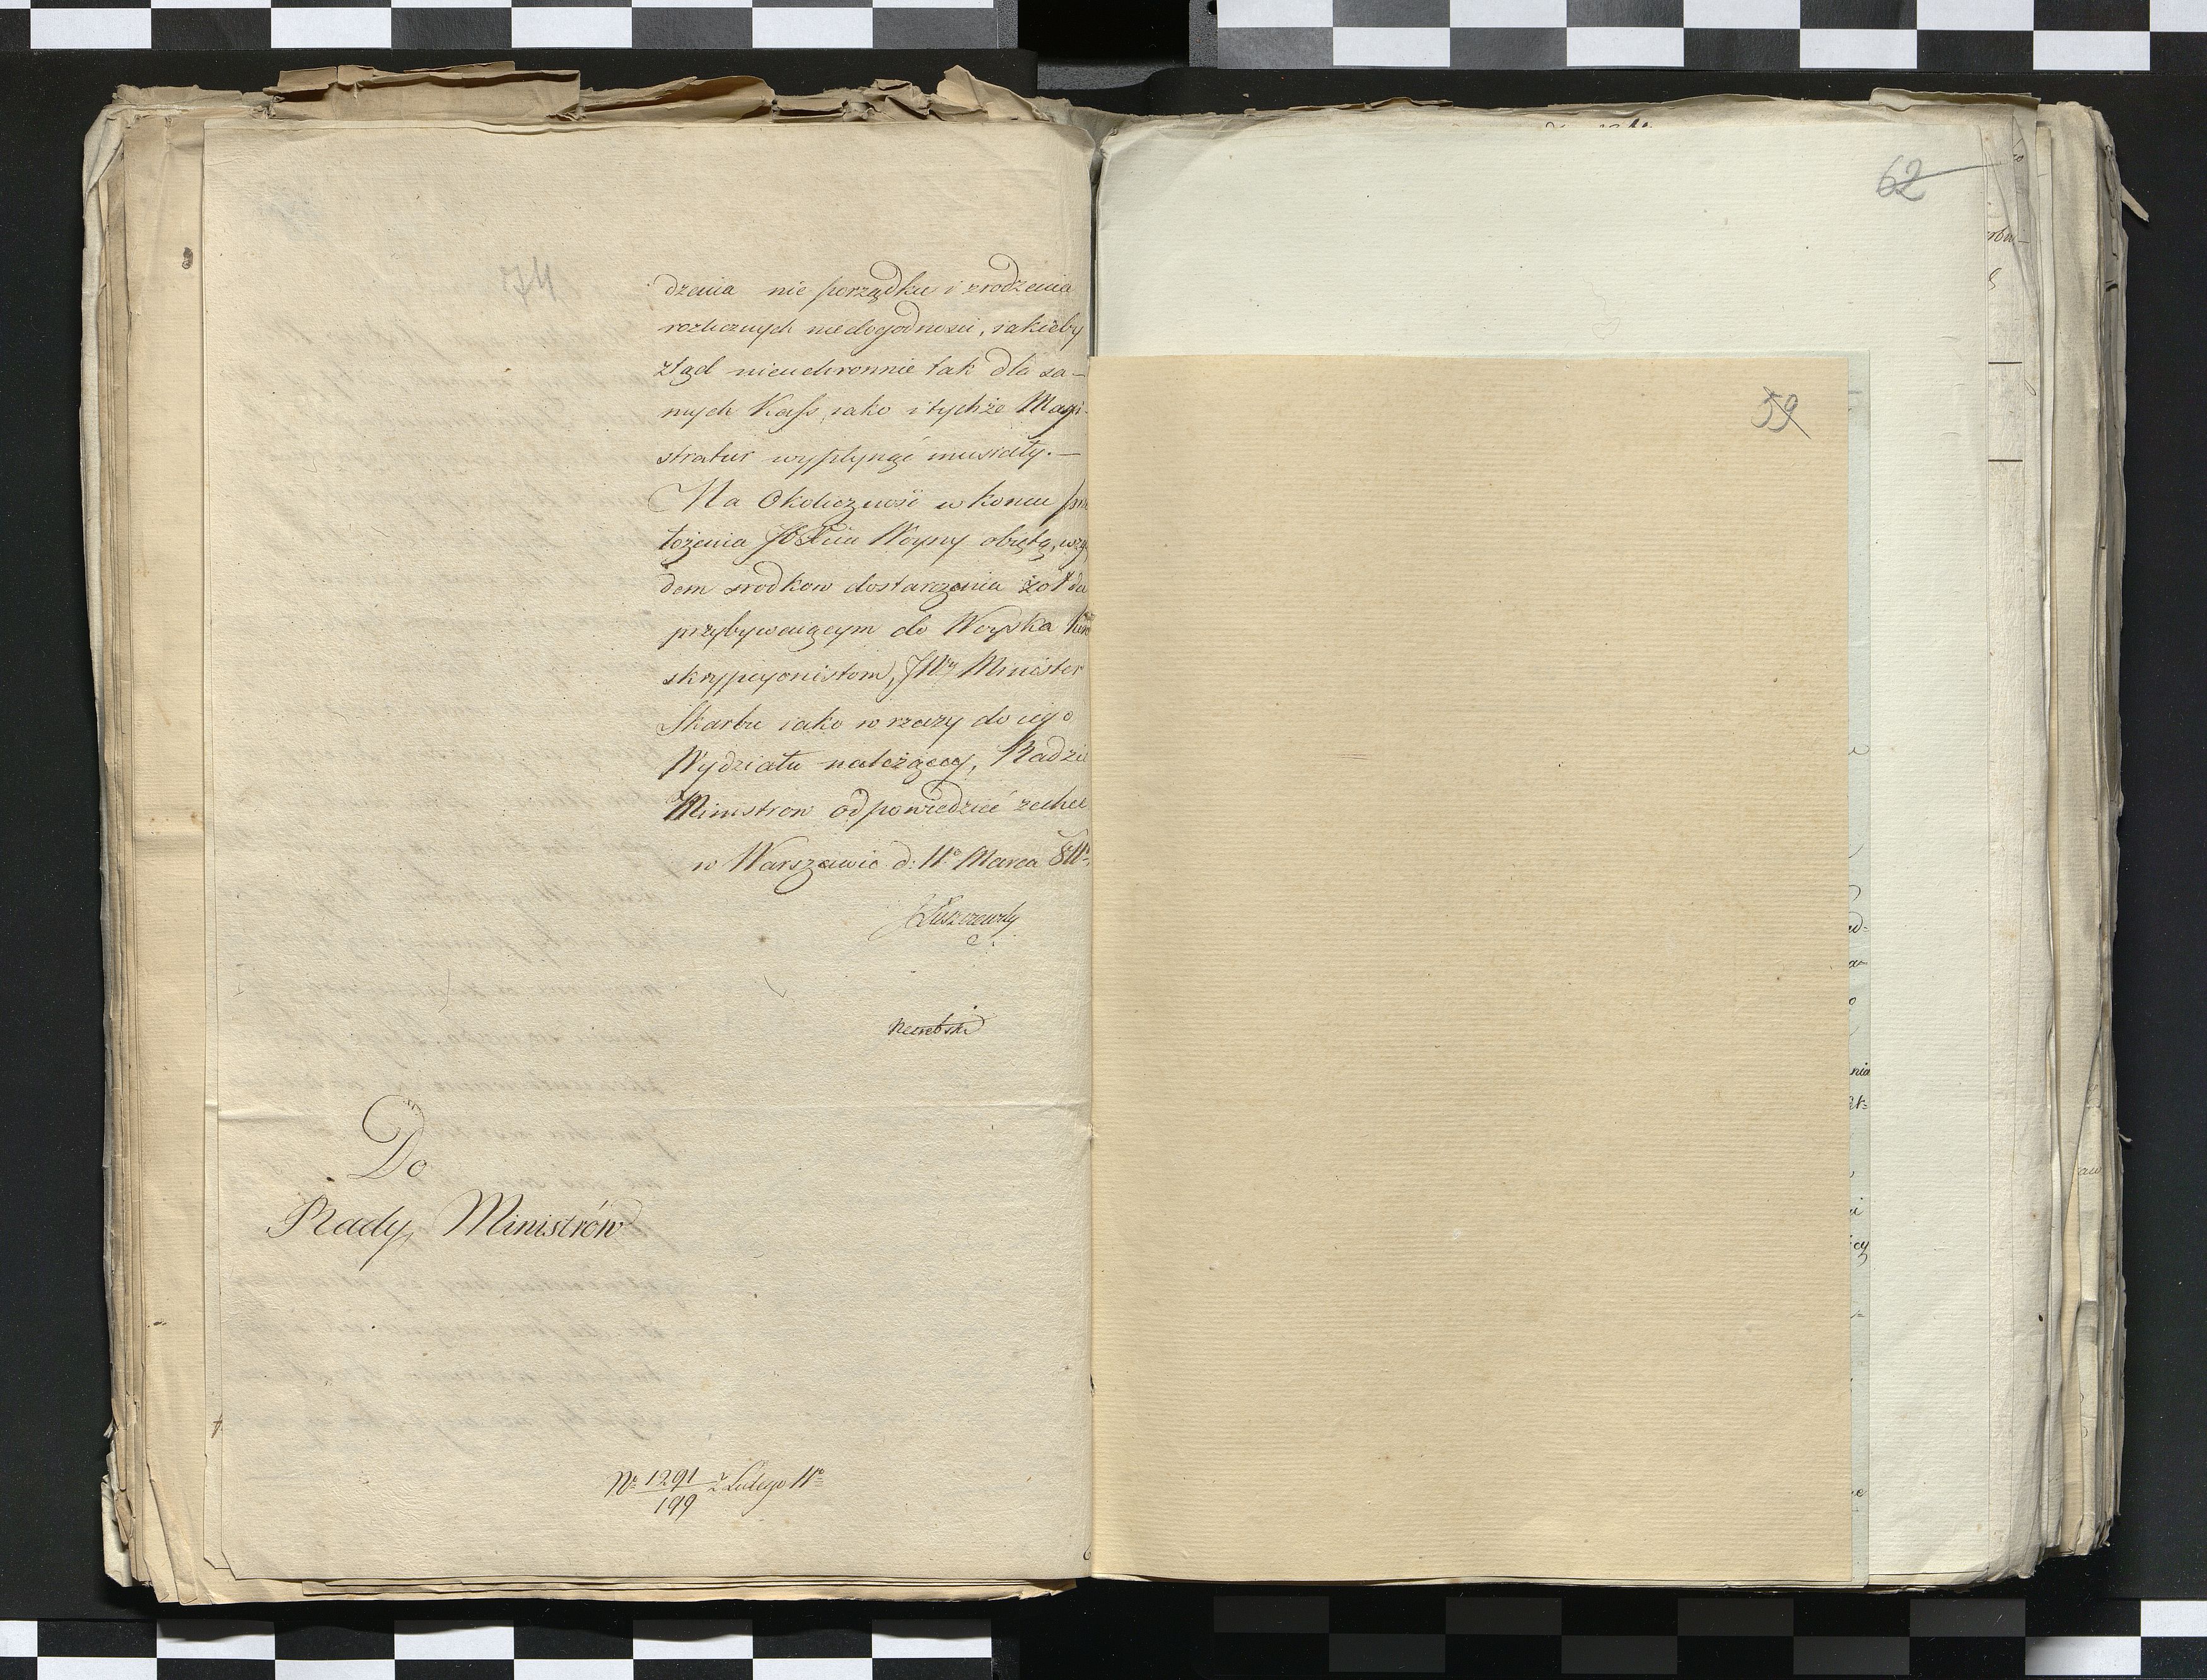 dzenia nie porządku i zrodzenia
rozlicznych niedogodności, iakieby
ztąd nieuchronnie tak dla sa-
mych Kass iako i tychże Magi-
stratur wypłynąć musiały.—
Na Okoliczność w końcu
łożenia Woyny obiętą,
dem srodkow dostarczenia żołdu
przybywaiącym do Woyska
skrypcyonistom, JW Minister
Skarbu iako w rzeczy do iego
Wydziału należącey, Radzie
Ministrow odpowiedzieć zechce
w Warszawie d: 11º Marca 811º
Łuszczewsky
Do
Rady Ministrów
Nº 1291/199 z Lutego 11º
62
59